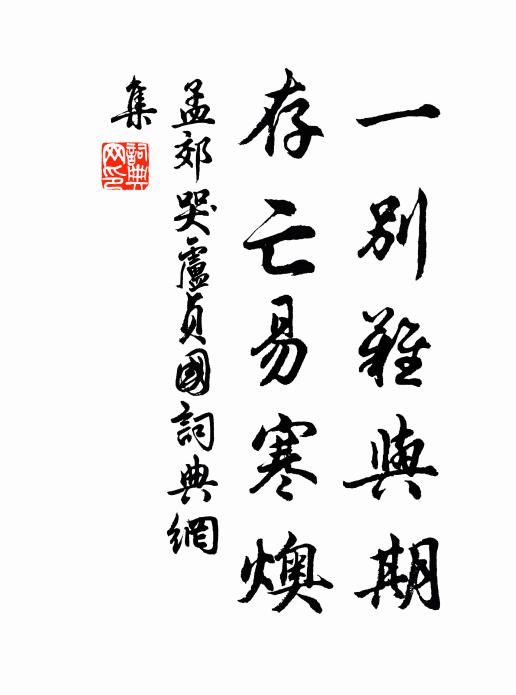 一別難與期
存亡易寒燠
孟郊哭盧貞國詞典網
集
詞典網印